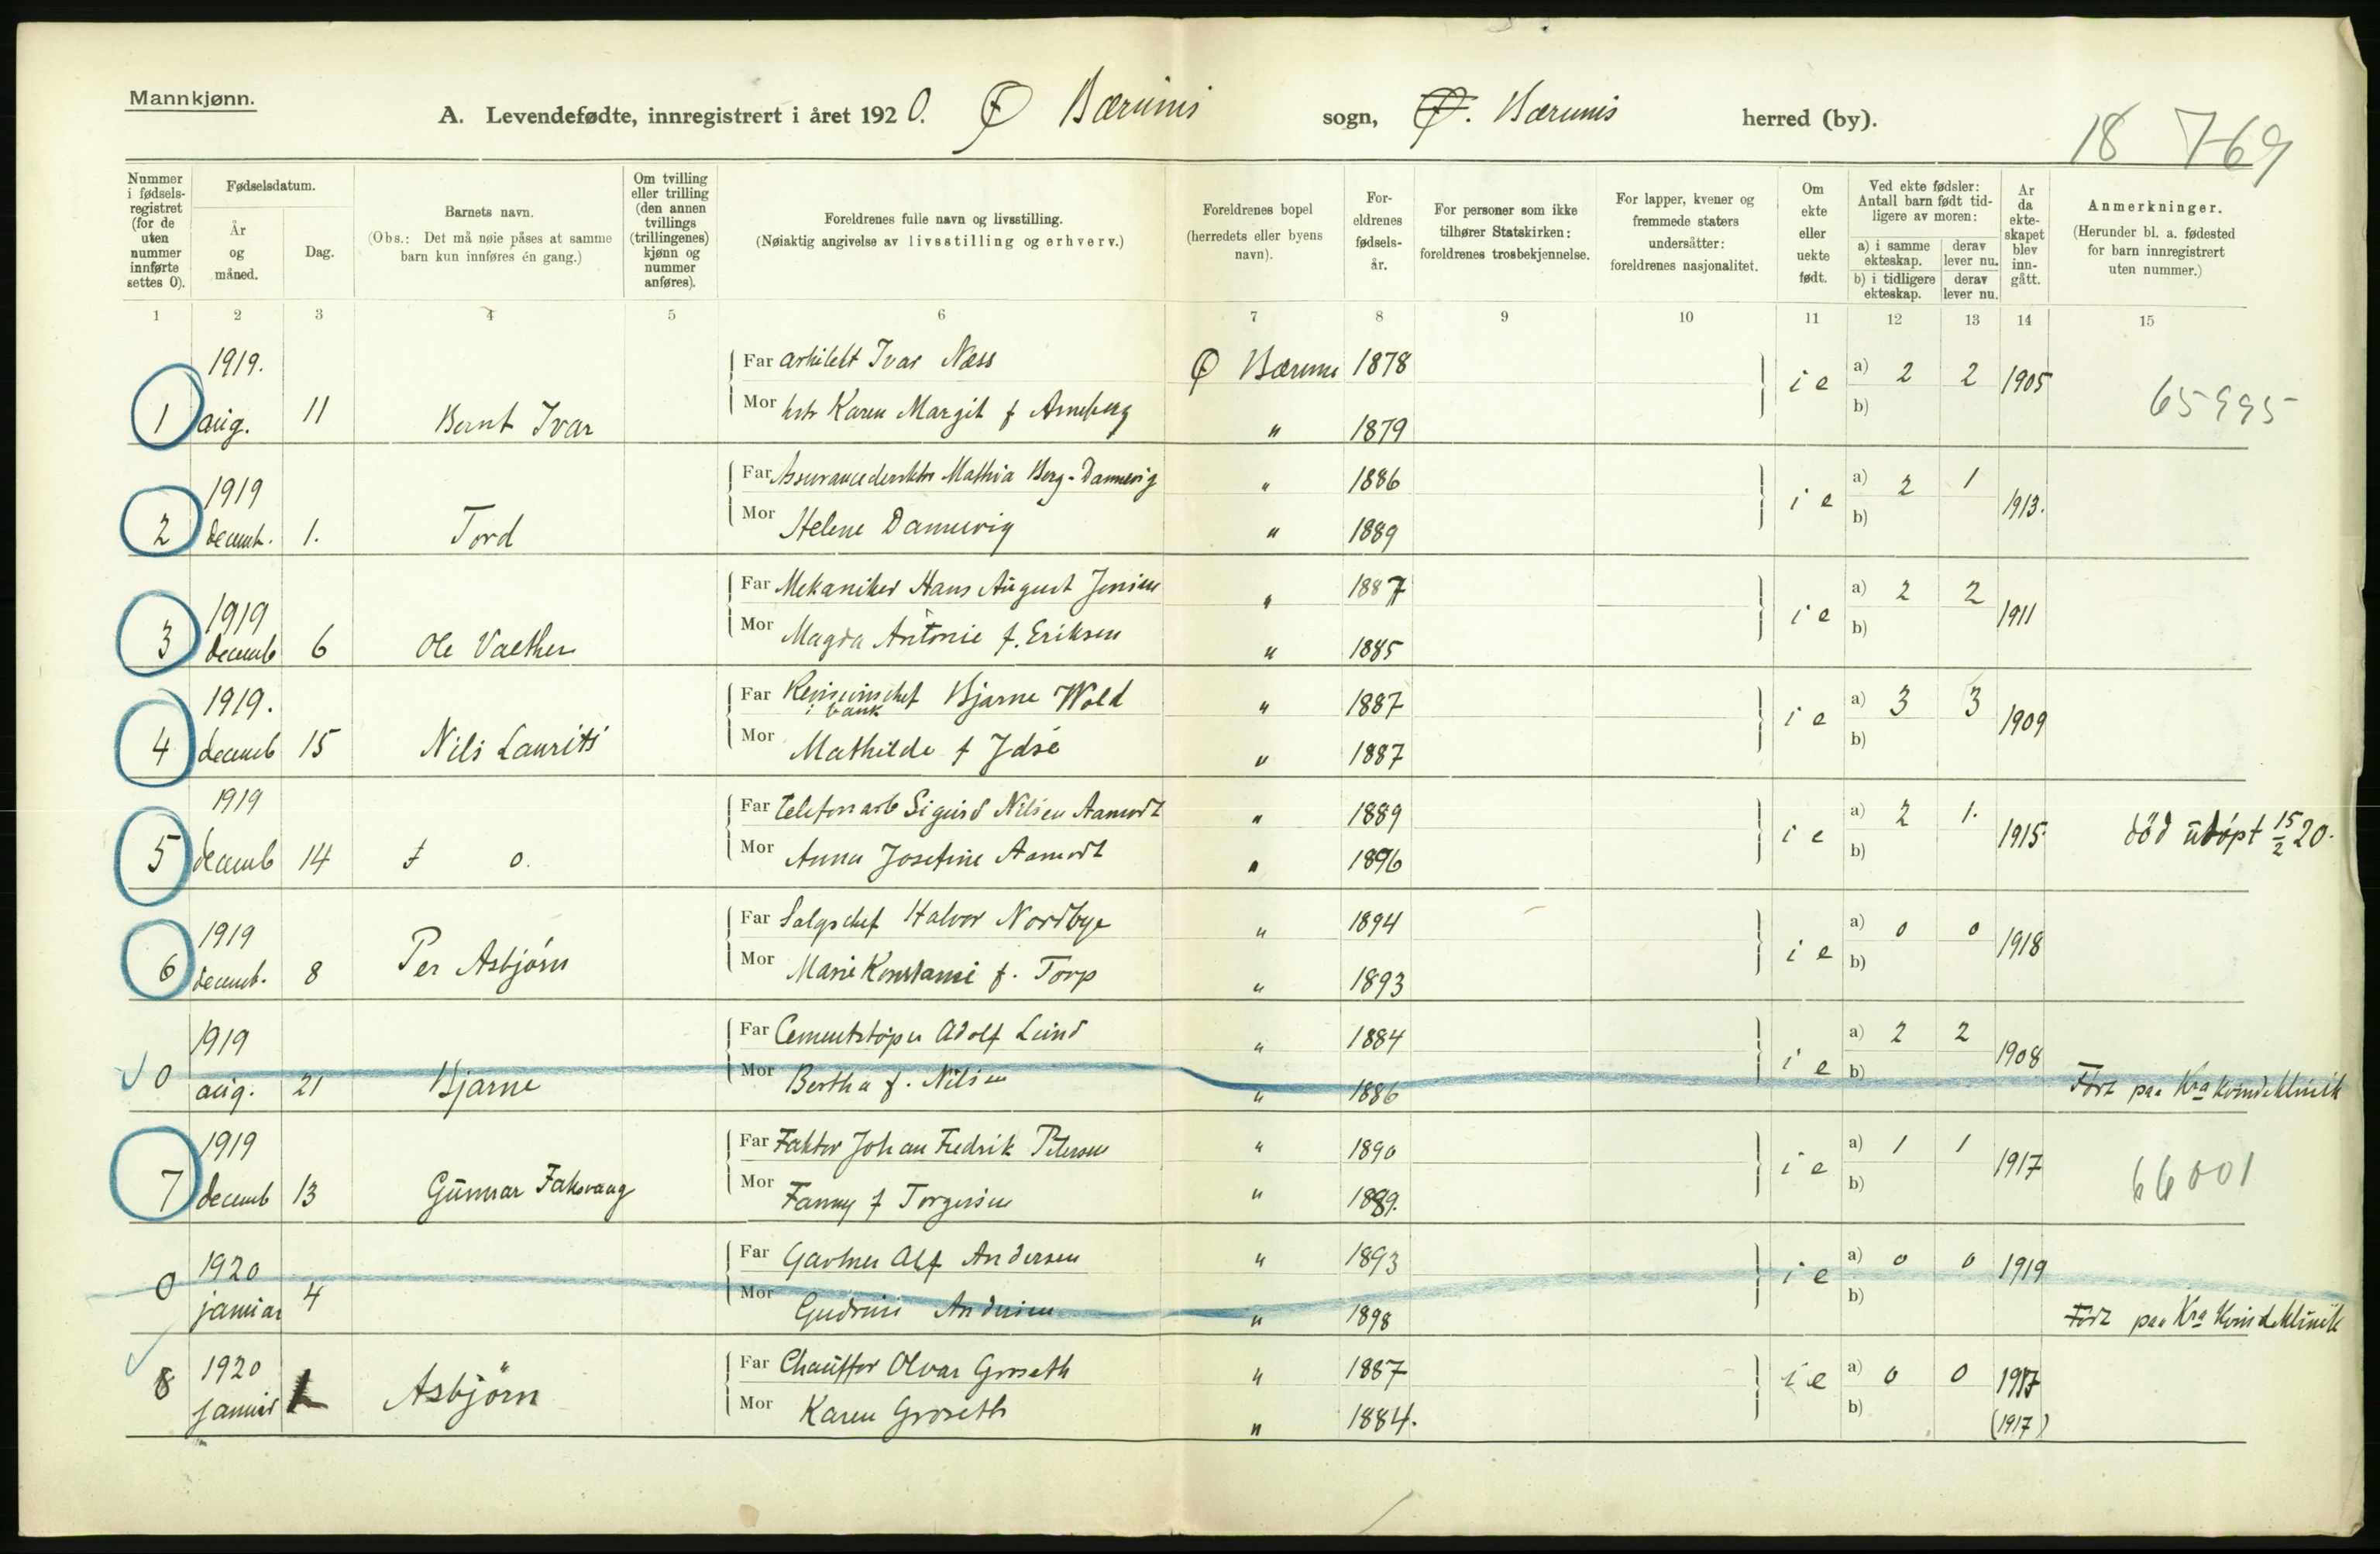 Mannkjønn.
A. Levendefødte, innregistrert i året 1920. Ø Bærums sogn, Ø. Bærums herred (by).
18 7-69
Nummer i fødsels-registret (for de uten nummer innførte settes 0).
Fødselsdatum.
År og måned.
Dag.
Barnets navn.
(Obs.: Det må nøie påses at samme barn kun innføres én gang.)
Om tvilling eller trilling (den annen tvillings (trillingenes) kjønn og nummer anføres).
Foreldrenes fulle navn og livsstilling.
(Nøiaktig angivelse av livsstilling og erhverv.)
Foreldrenes bopel (herredets eller byens navn).
For-eldrenes fødsels-år.
For personer som ikke tilhører Statskirken: foreldrenes trosbekjennelse.
For lapper, kvener og fremmede staters undersåtter: foreldrenes nasjonalitet.
Om ekte eller uekte født.
Ved ekte fødsler: Antall barn født tid-ligere av moren:
a) i samme ekteskap. derav lever nu.
b) i tidligere ekteskap. derav lever nu.
Ar da ekte-skapet blev inn-gått.
Anmerkninger.
(Herunder bl. a. fødested for barn innregistrert uten nummer.)
1 2 3 4 5 6 7 8 9 10 11 12 13 14 15
1919. Far arkitekt Ivar Næss Ø Bærums 1878 i e a) 2 2 1905
1 aug. 11 Bernt Ivar Mor hstr Karen Margit f Arneberg " 1879 b) 65995
1919 Far Assurancedirektør Mathia Berg-Dannevig " 1886 i e a) 2 1 1913.
2 decemb. 1. Tord Mor Helene Dannevig " 1889 b)
1919 Far Mekaniker Hans August Jensen " 1887 i e a) 2 2 1911
3 decemb 6 Ole Valther Mor Magda Antonie f. Eriksen " 1885 b)
1919. Far Revisionschef i bank Bjarne Wold " 1887 i e a) 3 3 1909
4 decemb 15 Nils Laurits Mor Mathilde f Idsé " 1887 b)
1919 Far Telefonarb Sigurd Nilsen Aamodt " 1889 i e a) 2 1. 1915
5 decemb 14 f o. Mor Anna Josefine Aamodt " 1896 b) död udöpt 15/2 20.
1919 Far Salgschef Halvor Nordbye " 1894 i e a) 0 0 1918
6 decemb. 8 Per Asbjörn Mor Marie Konstanse f. Torp " 1893 b)
1919 Far Cementstöper Adolf Lund " 1884 i e a) 2 2 1908
0 aug. 21 Bjarne Mor Bertha f. Nilsen " 1886 b) Födt paa Kra Kvindeklinik
1919 Far Faktor Johan Fredrik Petersen " 1890 i e a) 1 1 1917
7 decemb 13 Gunnar Faksvaag Mor Fanny f Torgersen " 1889. b) 66001
1920 Far Gartner Alf Andersen " 1893 i e a) 0 0 1919
0 januar 4 Mor Gudrun Andersen " 1898 b) Födt paa Kra Kvindeklinik
1920 Far Chauffør Olvar Groseth " 1887 i e a) 0 0 1917
8 januar 1 Asbjörn Mor Karen Groseth " 1884. b) (1917)